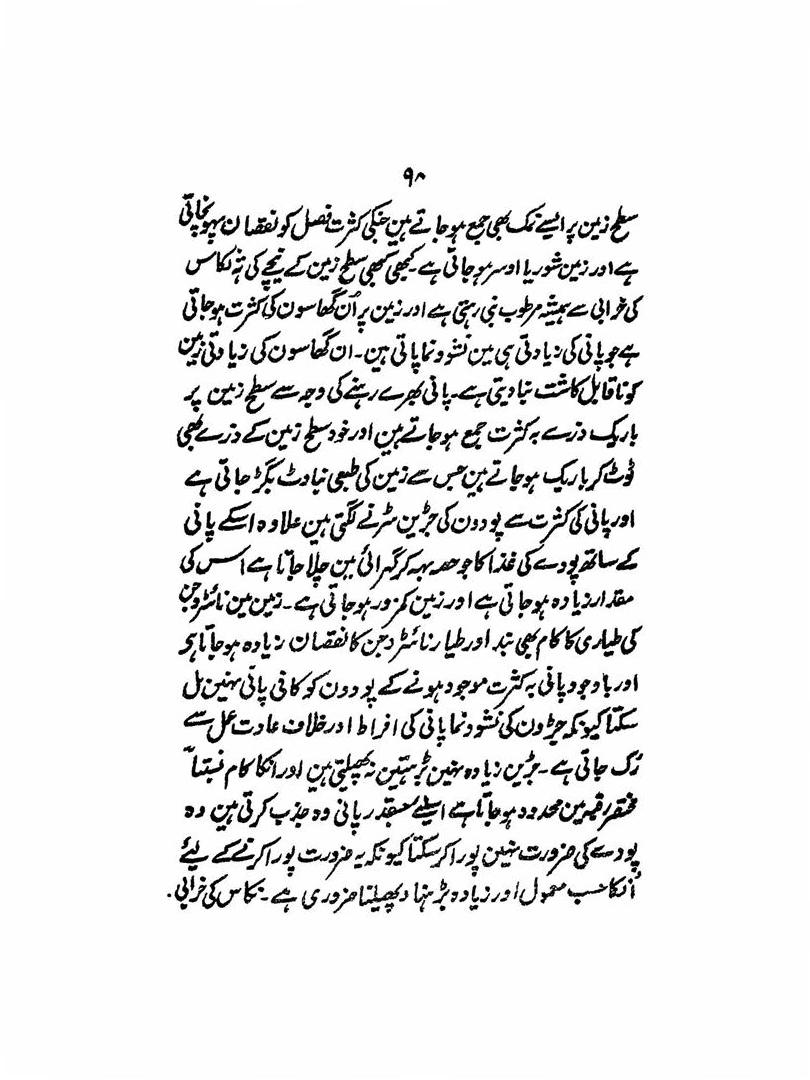 ۹۸
سطح زمین پر ایسے نمک بھی جمع ہو جاتے ہین جنکی کثرت فصل کو نقصان پہونچاتی
ہے اور زمین شور یا اوسر ہو جاتی ہے۔ کبھی کبھی سطح زمین کے نیچے کی تہ نکاس
کی خرابی سے ہمیشہ مرطوب بنی رہتی ہے اور زمین پر اُن گھاسون کی کثرت ہو جاتی
ہے جو پانی کی زیادتی ہی مین نشو و نما پاتی ہین۔ ان گھاسون کی زیادتی زمین
کو ناقابل کاشت بنا دیتی ہے۔ پانی بھرے رہنے کی وجہ سے سطح زمین پر
باریک ذرے بہ کثرت جمع ہو جاتے ہین اور خود سطح زمین کے ذرے بھی
ٹوٹ کر باریک ہو جاتے ہین جس سے زمین کی طبعی بناوٹ بگڑ جاتی ہے
اور پانی کی کثرت سے پودون کی جڑین سڑنے لگتی ہین علاوہ اسکے پانی
کے ساتھ پودے کی غذا کا جو حصہ بہہ کر گہرائی مین چلا جاتا ہے اس کی
مقدار زیادہ ہو جاتی ہے اور زمین کمزور ہو جاتی ہے۔ زمین مین نائٹروجن
کی طیاری کا کام بھی بند اور طیار نائٹروجن کا نقصان زیادہ ہو جاتا ہو
اور باوجود پانی بہ کثرت موجود ہونے کے پودون کو کافی پانی نہین مل
سکتا کیونکہ جڑون کی نشو و نما پانی کی افراط اور خلاف عادت عمل سے
رُک جاتی ہے۔ جڑین زیادہ نہین بڑہتین نہ پھیلتی ہین اور انکا کام نسبتاً
مختصر رقبہ مین محدود ہو جاتا ہے اسلیے جسقدر پانی وہ جذب کرتی ہین وہ
پودے کی ضرورت نہین پورا کر سکتا کیونکہ یہ ضرورت پورا کرنے کے لیئے
اُنکا حسب معمول اور زیادہ بڑہنا و پھیلنا ضروری ہے۔ نکاس کی خرابی۔